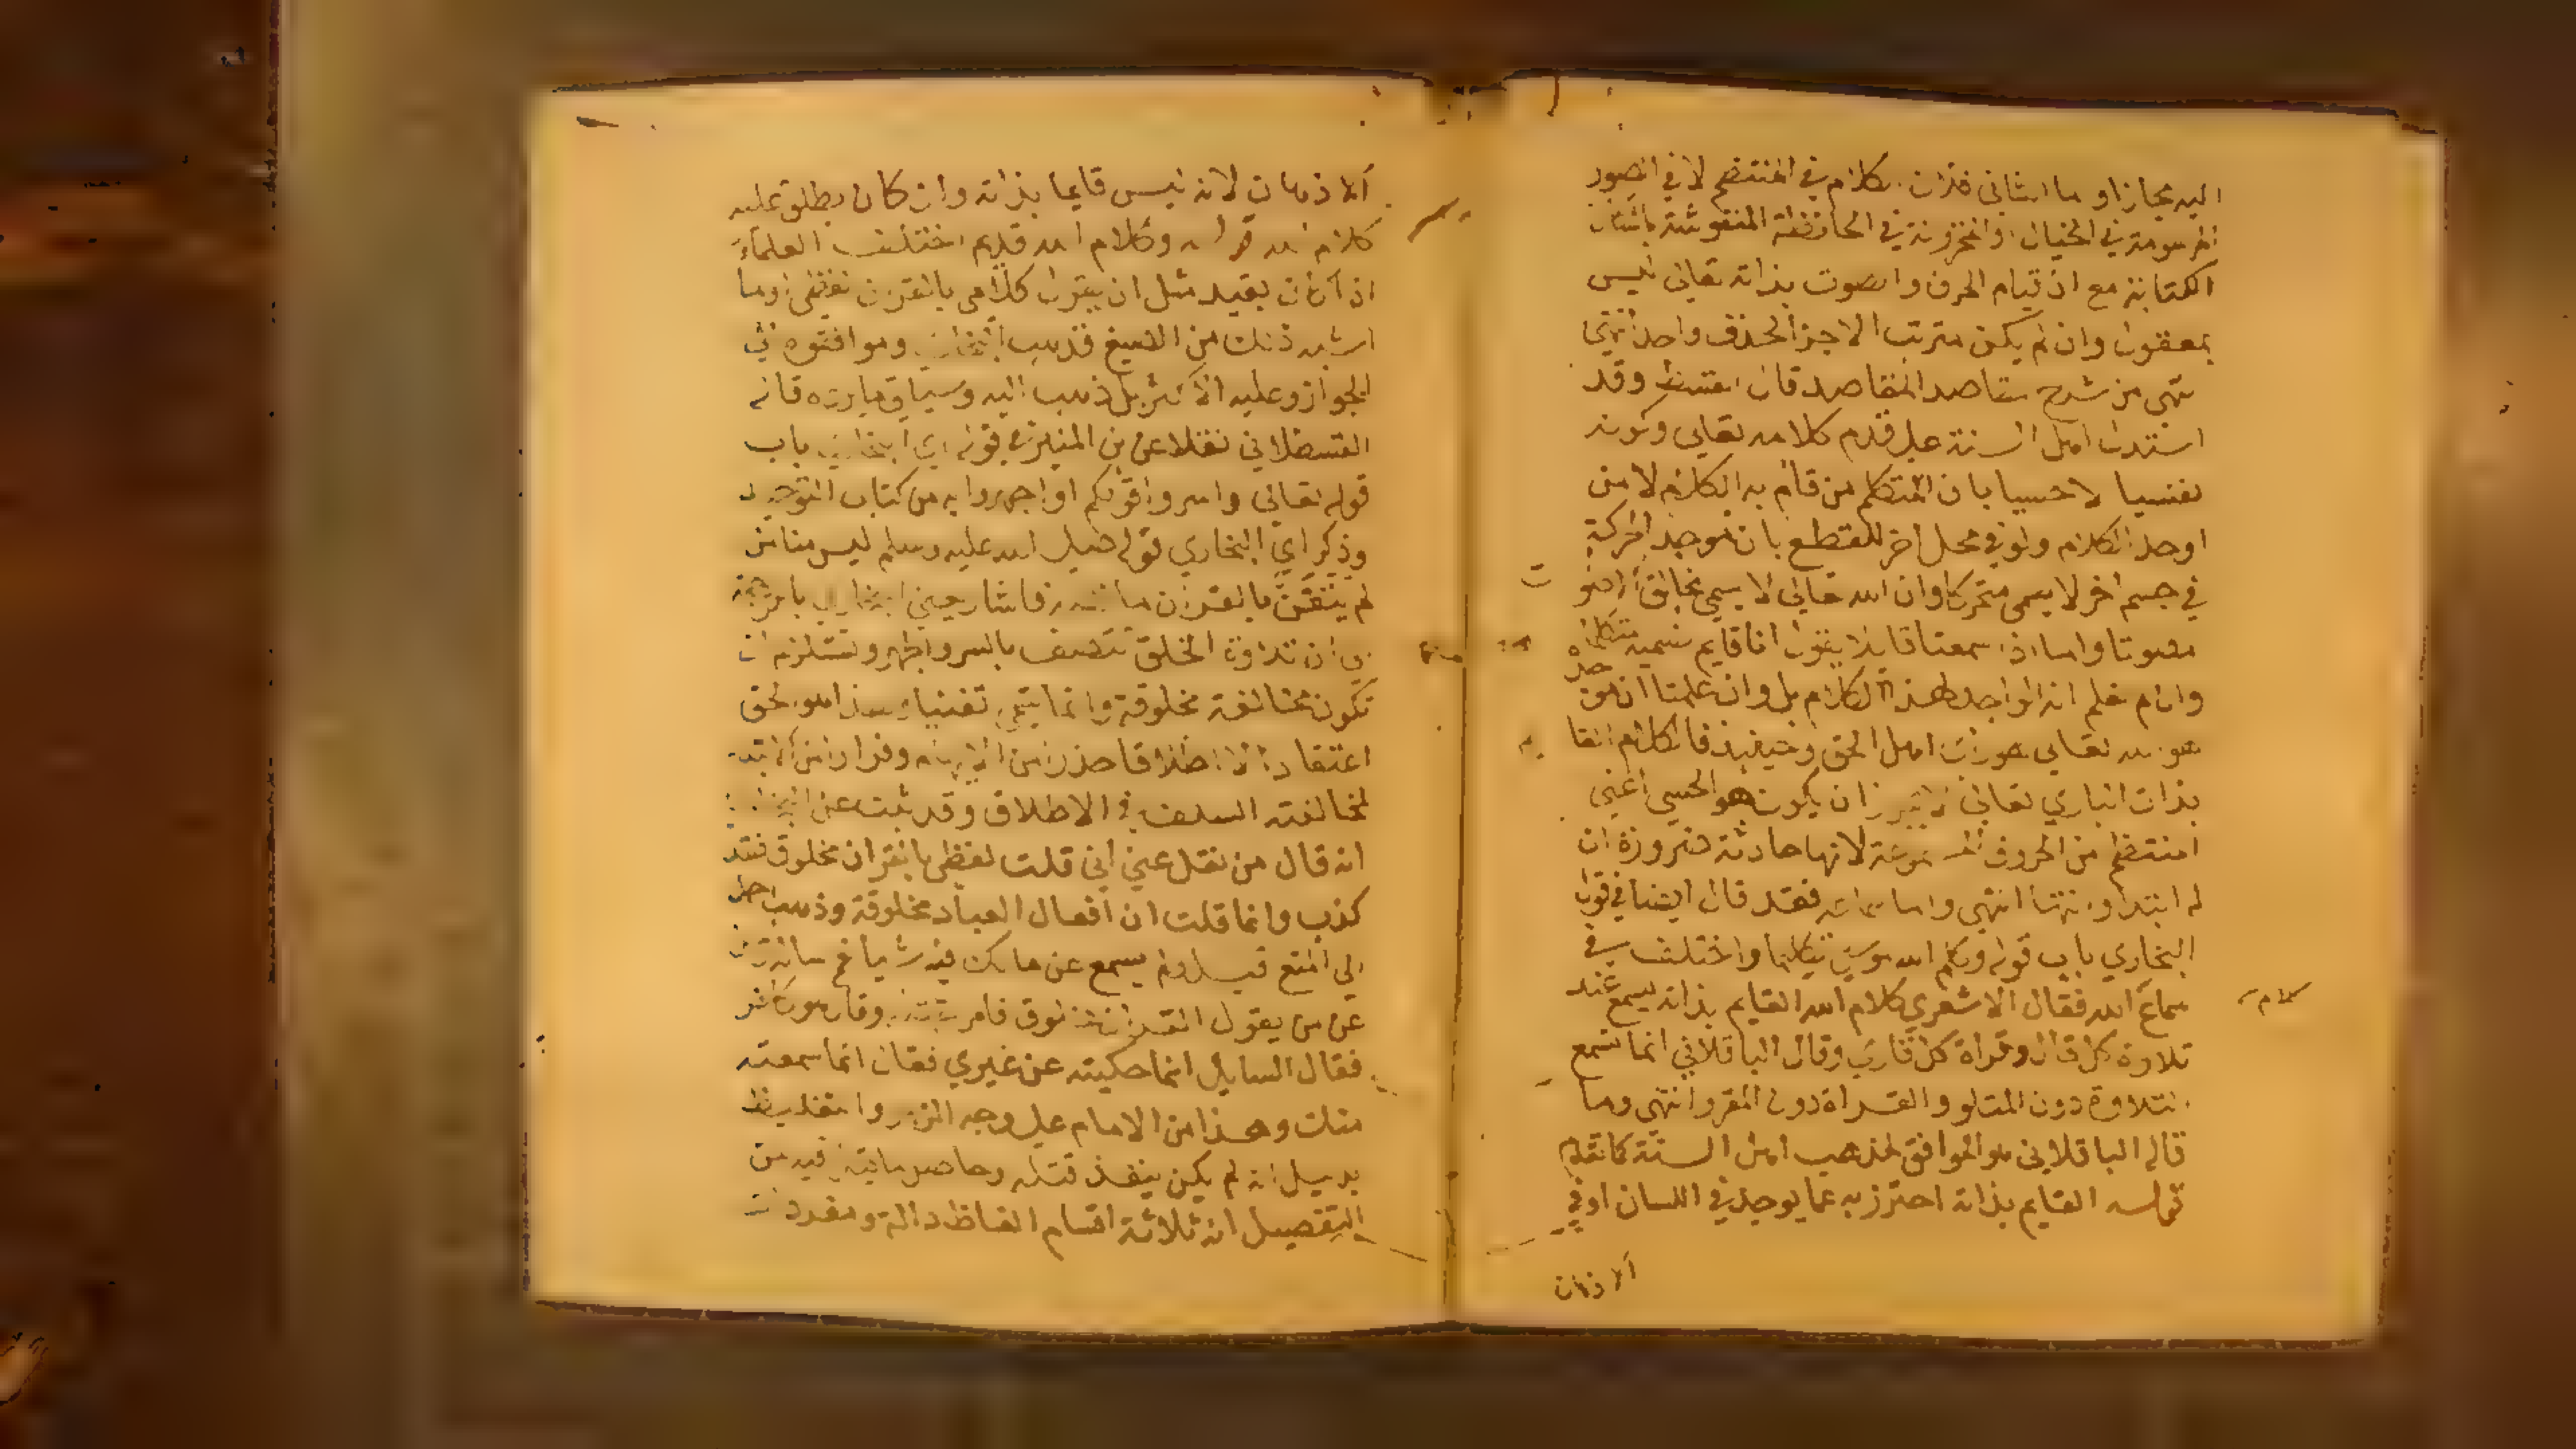 اليه مجازا و ما الثاني فلان الكلام في المنتظم لا في الصور
المرسومة في الخيال او المخزونة في الحافظة المنقوشة باشكال
الكتابة مع ان قيام الحرف والصوت بذاته تعالى ليس
بمعقول وان لم يكن مترتب الاجزا لحذف واحد
نتهى من شرح مقاصد المقاصد قال وقد
استدل اهل السنة على قدم كلامه تعالى وكونه
نفسيا لا حسيا بان المتكلم من قام به الكلام لا من
اوجد الكلام ولو في محل اخر للقطع بان موجد الحركة
في جسم اخر لا يسمى متحركا وان الله تعالى لا يسمى بخالق الاصوات
مصوتا واما اذا سمعنا قايلا يقول انا قايم نسميه متكلما
وان لم نعلم انه الموجد لهذا الكلام بل وان علمنا ان موجده
هو الله تعالى هو راي اهل الحق وحينيذ فالكلام القايم
بذات الباري تعالى لا يجوز ان يكون هو الحسي اعني
المنتظم من الحروف المسموعة لانها حادثة ضرورة ان
له ابتدا وانتها انتهى واما سماعه فقد قال ايضا في قول
البخاري باب قوله وكلم الله موسى تكليما واختلف في
سماع كلام الله فقال الاشعري كلام الله القايم بذاته يسمع عند
تلاوة كل تال وقراة كل قاري وقال الباقلاني انما تسمع
التلاوة دون المتلو والقراة دون المقرو انتهى وما
قاله الباقلاني هو الموافق لمذهب اهل السنة كما تقدم
قوله القايم بذاته احترز به عما يوجد في اللسان او في
الاذهان
الاذهان لانه ليس قايما بذاته وان كان يطلق عليه
كلام الله قوله وكلام الله قديم اختلف العلماء
اذا كان بقيد مثل ان يقول كلامي بالقران لفظي او ما
اشبه ذلك من الصيغ فذهب البخاري وموافقوه الى
الجواز وعليه الاكثر بل ذهب اليه وسياق ما يرده قاله
القسطلاني نقلا عن بن المنير في قوله اي البخاري باب
قوله تعالى واسروا قولكم او اجهروا به من كتاب التوحيد
وذكر اي البخاري قوله صلى الله عليه وسلم ليس منا من
لم يتغن بالقران ما نصه فاشار يعني البخاري بالترجمة
الى ان تلاوة الخلق تتصف بالسر والجهر وتستلزم ان
تكون مخلوقة وانما يسمى تغنيا وهذا هو الحق
اعتقادا لا اطلاقا حذرا من الايهام وفرارا من الابتداع
لمخالفته السلف في الاطلاق وقد ثبت عن البخاري
انه قال من نقل عني اني قلت لفظي بالقران مخلوق فقد
كذب وانما قلت ان افعال العباد مخلوقة وذهب احمد
الى المنع قيل ولم يسمع عن مالك فيه شيا غير ما نقل
عن من يقول القران مخلوق فامر بقتله وقال هو كافر
فقال السايل انما حكيته عن غيري فقال انما سمعته
منك وهذا من الامام على وجه الزجر والتغليظ
بدليل انه لم يكن ينفذ قتله وحاصر ما قيل فيه من
التفصيل انه ثلاثة اقسام الفاظ دالة ومفردات